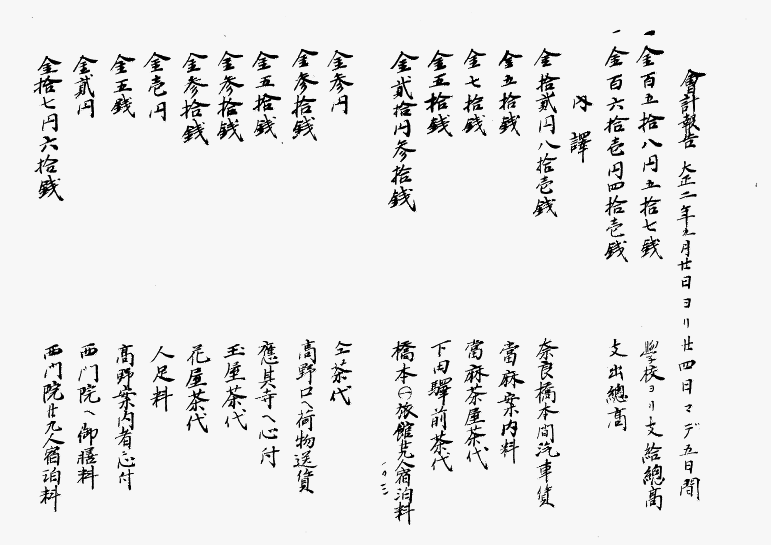 會計報告 大正二年五月廿日ヨリ廿四日マデ五日間
一金百五拾八円五拾七銭 學校ヨリ支給總高
一金百六拾壱円四拾壱銭 支出總高
内譯
金拾貳円八拾壱銭 奈良橋本間汽車賃
金五拾銭 當麻案内料
金七拾銭 當麻茶屋茶代
金五拾銭 下田驛前茶代
金貳拾円参拾銭 橋本㊀旅館 人宿泊料
金参円 仝茶代
金参拾銭 高野口へ荷物送賃
金五拾銭 應其寺へ心付
金参拾銭 玉屋茶代
金参拾銭 花屋茶代
金壱円 人足料
金五銭 高野案内者心付
金貳円 西門院へ御膳料
金拾七円六拾銭 西門院廿九人宿泊料